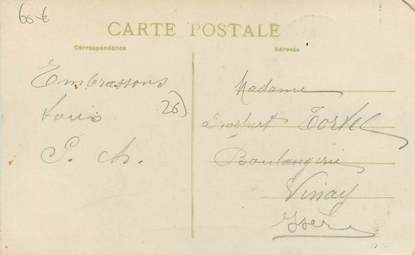 60 €
CARTE POSTALE
Correspondance
Adresse
Embrassons
26
P. Ch.
Madame
Tortel
Boulangerie
Vinay
Isère